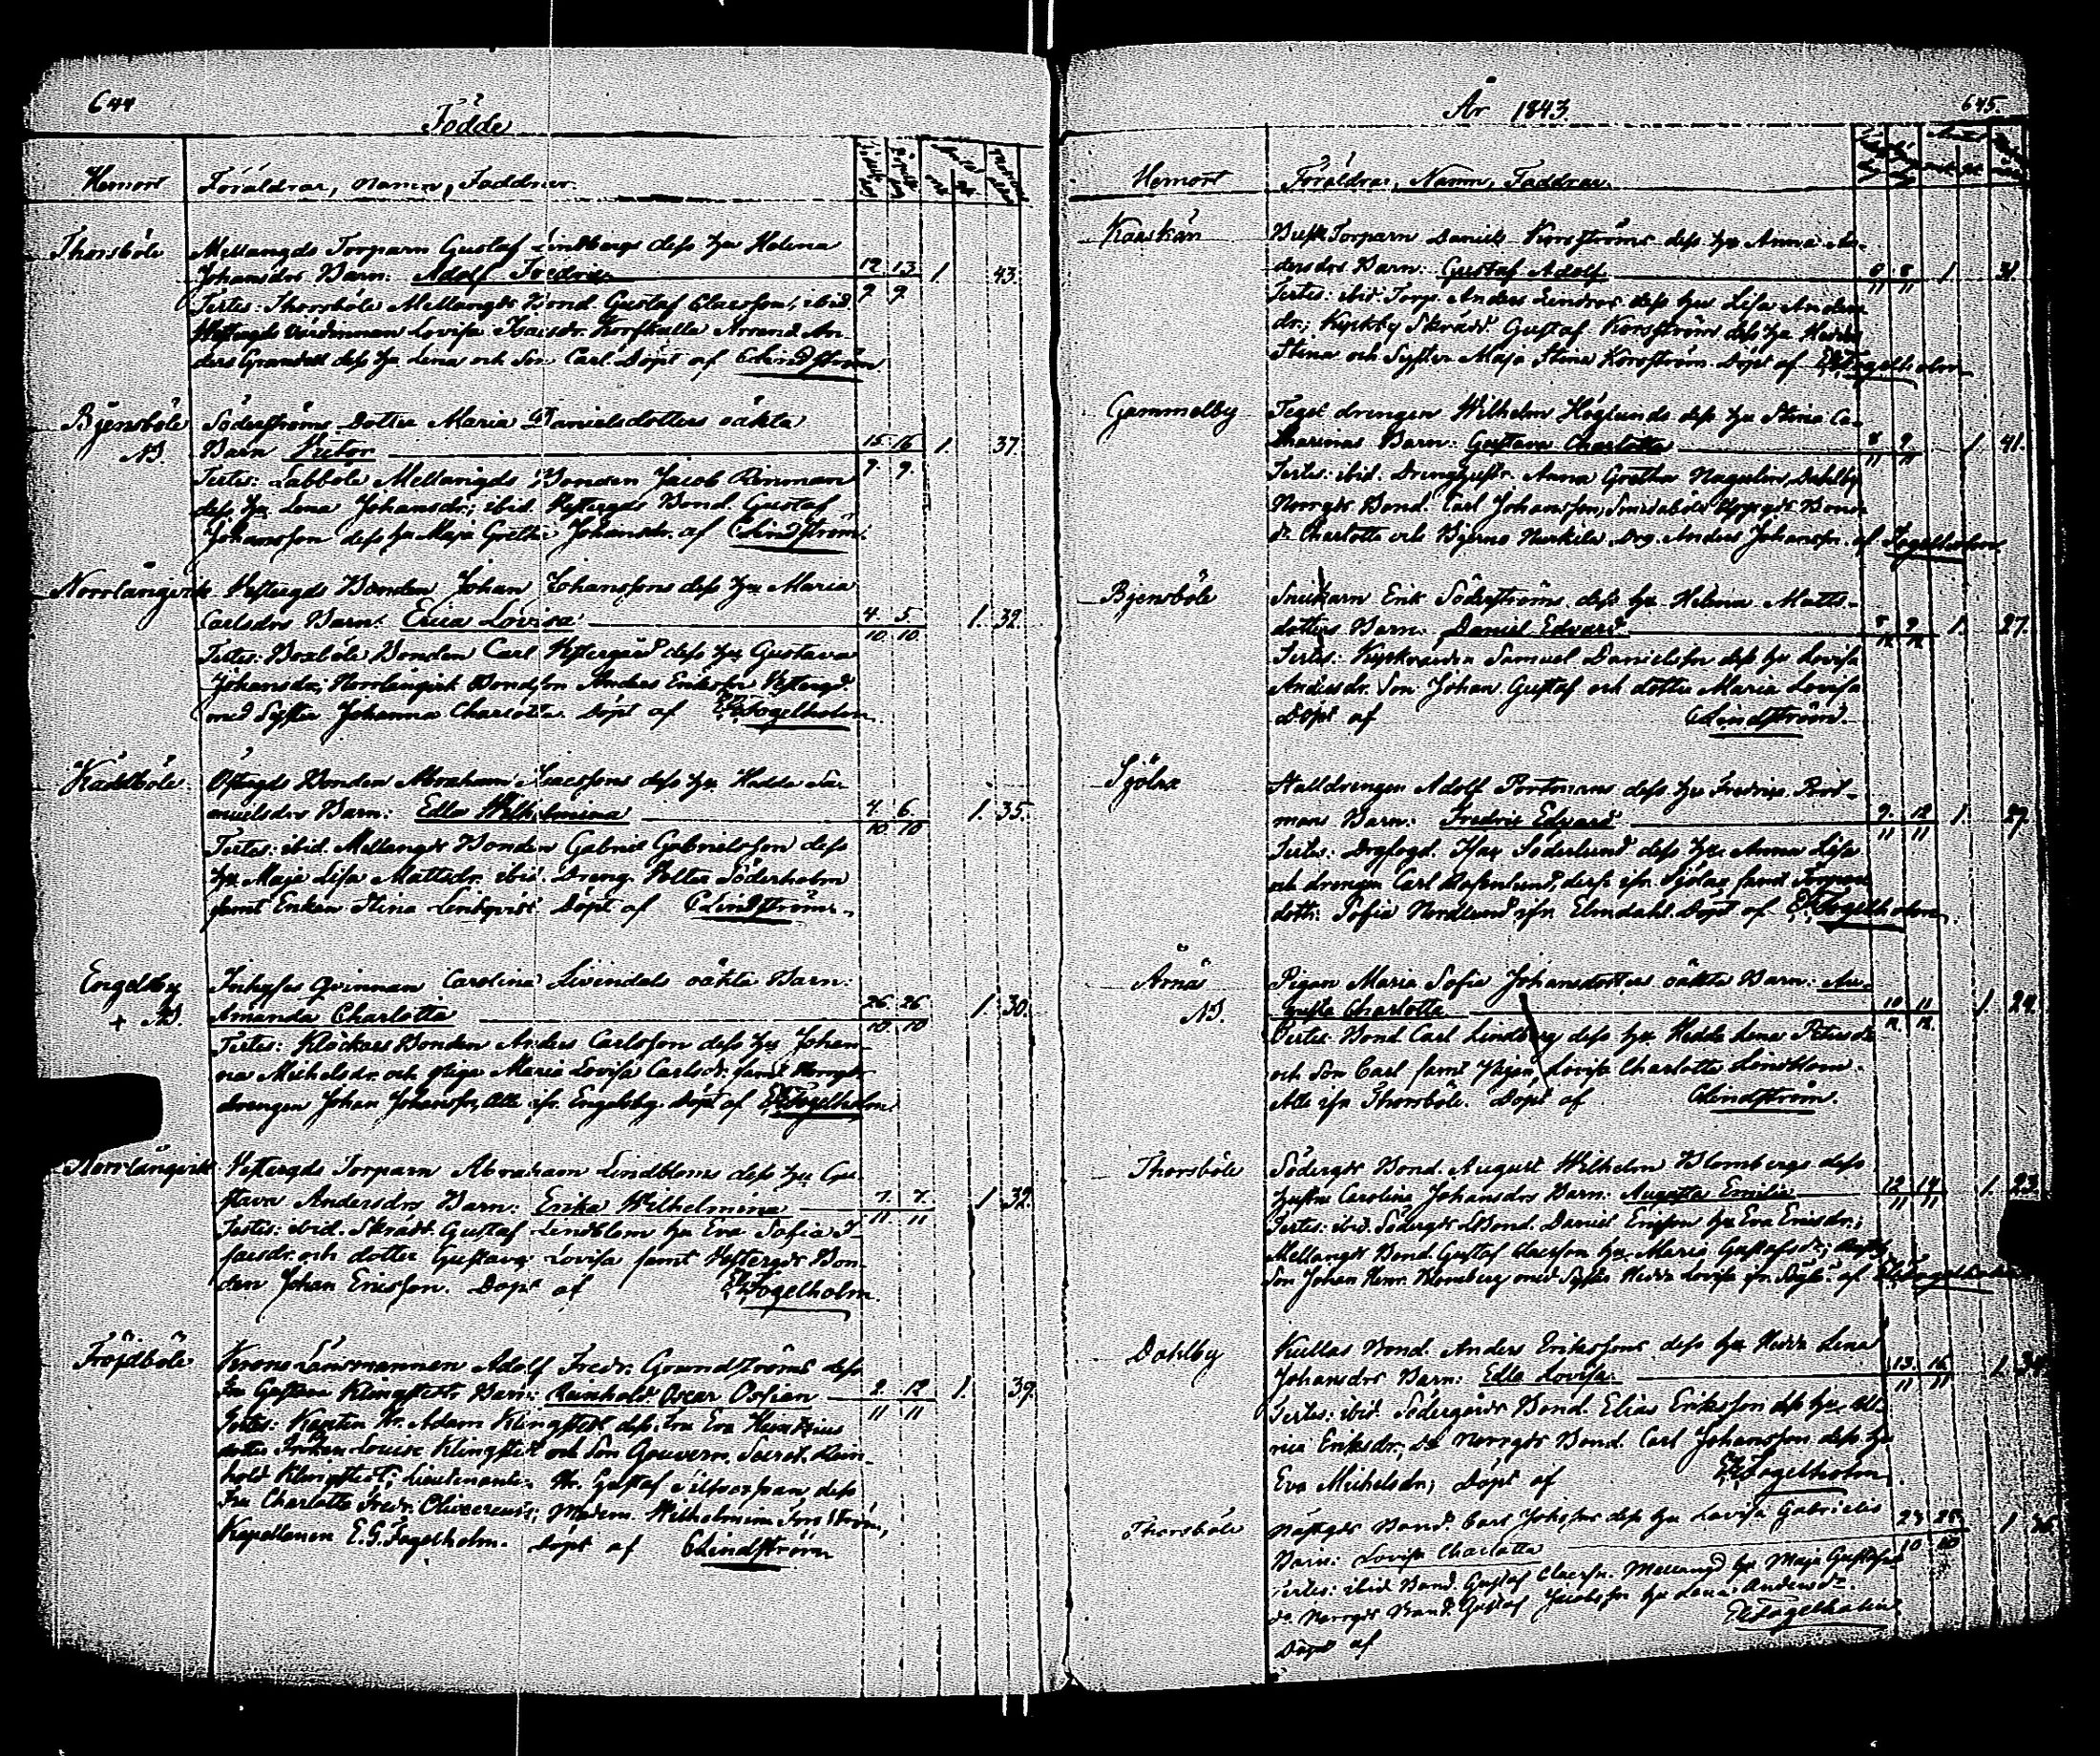 644
Födde
Hemort Föräldrar, namn, Faddrar.
Thorsböle Mellangds Torparn Gustaf Lindbergs dess hu Helena
Johansdrs Barn: Adolf Fredric 12 13 1. 43.
9. 9.
Testes: Thorsböle Mellangds Bond. Gustaf Claesson, ibid.
Lovisa Isacsdr. Arrend. An-
ders dess hu Lena och Son Carl. Döpt af CLindström
Bjensböle Söderströms Dotter Maria Danielsdotters oäkta
Barn Victor 15 16 1. 37.
9. 9.
Testes: Labböle Mellangds Bonden Jacob Rinman
dess hu Lena Johansdr; ibid. Vestergds Bond. Gustaf
Johansson dess hu Maja Gretha Johansdr. af CLindström.
Norrlångvik Vestergds Bonden Johan Johanssons dess hu Maria
Carlsdrs Barn: Erica Lovisa 4. 5. 1. 32.
10. 10.
Testes: Boxböle Bonden Carl Vestergård dess hu Gustava
Johansdr; Norrlångvik Bondson Anders Ericsson Vestergd.
med Syster Johanna Charlotta. Döpt af Fogelholm
Östergds Bonden Abraham Isacssons dess hu Hedda Sa-
muelsdrs Barn: Edla Wilhelmina 4. 6. 1. 35.
10. 10
Testes: ibid. Mellangds Bonden Gabriel Gabrielsson dess
hu Maja Lisa Mattsdr. ibid. Dreng Volter Söderholm
samt Enkan Stina Lindqvist. Döpt af CLindström.
Engelsby Inhyses Qvinnan Carolina oäkta Barn:
Amanda Charlotta 26 26 1. 30.
10. 10
Testes: Klockars Bonden Anders Carlsson dess hu Johan-
na Michelsdr. och Piga Maria Lovisa Carlsdr. samt Norrgds
drengen Johan Johansson, Alla ifr. Engelsby. Döpt af Fogelholm
Norrlångvik Vestergds Torparn Abraham Lindbloms dess hu Gu-
stava Andersdrs Barn: Erika Wilhelmina 7. 7. 1. 32.
11. 11
Testes: ibid. Skrädd. Gustaf Lindblom hu Eva Sofia I-
sacsdr. och dotter Gustava Lovisa samt Vestergds Bon-
den Johan Ericsson. Döpt af Fogelholm.
Fröjdböle Krono Länsmannen Adolf Fredr. Grundströms dess
Fru Gustava Klingstedts Barn: Reinhold Oscar Ossian 2. 12 1. 39.
11 11
Testes: Kaptin Hr. Adam Klingstedt dess Fru Eva
dotter Fröken Louise Klingstedt och Son Gouvern. Secret. Rein-
hold Klingstedt; Lieutenanten Hr. Gustaf dess
Fru Charlotta Fredr. ; Wilhelmina Forsström,
Kapellanen E.G. Fogelholm. Döpt af CLindström
År 1843.
645.
Hemort Föräldrar, Namn, Faddrar.
Torparn Daniels Korsströms dess hu Anna An-
dersdrs Barn: Gustaf Adolf 6 8 1 31.
11 11
Testes: ibid. Torp. Anders dess hu Lisa Anders
dr; Kyrkby Skrädd. Gustaf Korsström dess hu Hedda
Stina och Syster Maja Stina Korsström. Döpt af Fogelholm
Gammelby drengen Wilhelm Höglunds dess hu Stina Ca-
tharinas Barn: Gustava Charlotta 8 9 1. 41.
11 11
Testes: ibid. Anna Gretha Dahlby
Norrgds Bond. Carl Johansson,
Charlotta och Drg. Anders Johansson. af Fogelholm
Bjensböle Snickarn Erik Söderströms dess hu Helena Matts-
dotters Barn: Daniel Edvard 8 9. 1. 27.
Testes: Kyrkvärden Samuel Danielsson dess hu Lovisa
Andersdr. Son Johan Gustaf och dotter Maria Lovisa
Döpt af CLindström.
Sjölax Stalldrengen Adolf Portmans dess hu Fredrica Port-
mans Barn: Fredric Edvard 9. 12 1.
11 11
Testes: Drgfogd. Isac Söderlund dess hu Anna Lisa
och drengen Carl ifr. Sjölax samt
dottr. Sofia Nordlund ifr. Elmdahl. Döpt af Fogelholm.
Årnäs Pigan Maria Sofia Johansdotters oäkta Barn: Au-
gusta Charlotta 10 11 1. 24
Testes: Bond. Carl Lindberg dess hu Hedda Lena Petersdr
och Son Carl samt Pigan Lovisa Charlotta Lindblom.
Alla ifr. Thorsböle. Döpt af CLindström.
Thorsböle Södergds Bond. August Wilhelm Blombergs dess
hustru Carolina Johansdrs Barn: Augusta Emilia 12 14 1. 23.
11 11
Testes: ibid. Södergds Bond. Daniel Ericsson hu Eva Ericsdr;
Mellangds Bond. Gustaf Claesson hu Maria Gustafsdr;
Son Johan Henr. Blomberg med Syster Hedda Lovisa af Fogelholm
Dahlby Kullas Bond. Anders Erikssons dess hu Hedda Lena
Johansdrs Barn: Edla Lovisa. 13. 16 1.
11 11
Testes: ibid. Södergårds Bond. Elias Eriksson dess hu Ul-
rica Eriksdr; Norrgds Bond. Carl Johansson dess hu
Eva Michelsdr; Döpt af Fogelholm
Thorsböle Bond. Carl dess hu Lovisa Gabriels
Barn: Lovisa Charlotta 10 10
Testes: ibid. Bond. Gustaf Claesson. Mellangd hu Maja Gustafsd
do Norrgds Bond. Gustaf Jacobsson hu Lena Andersdr.
Döpt af Fogelholm